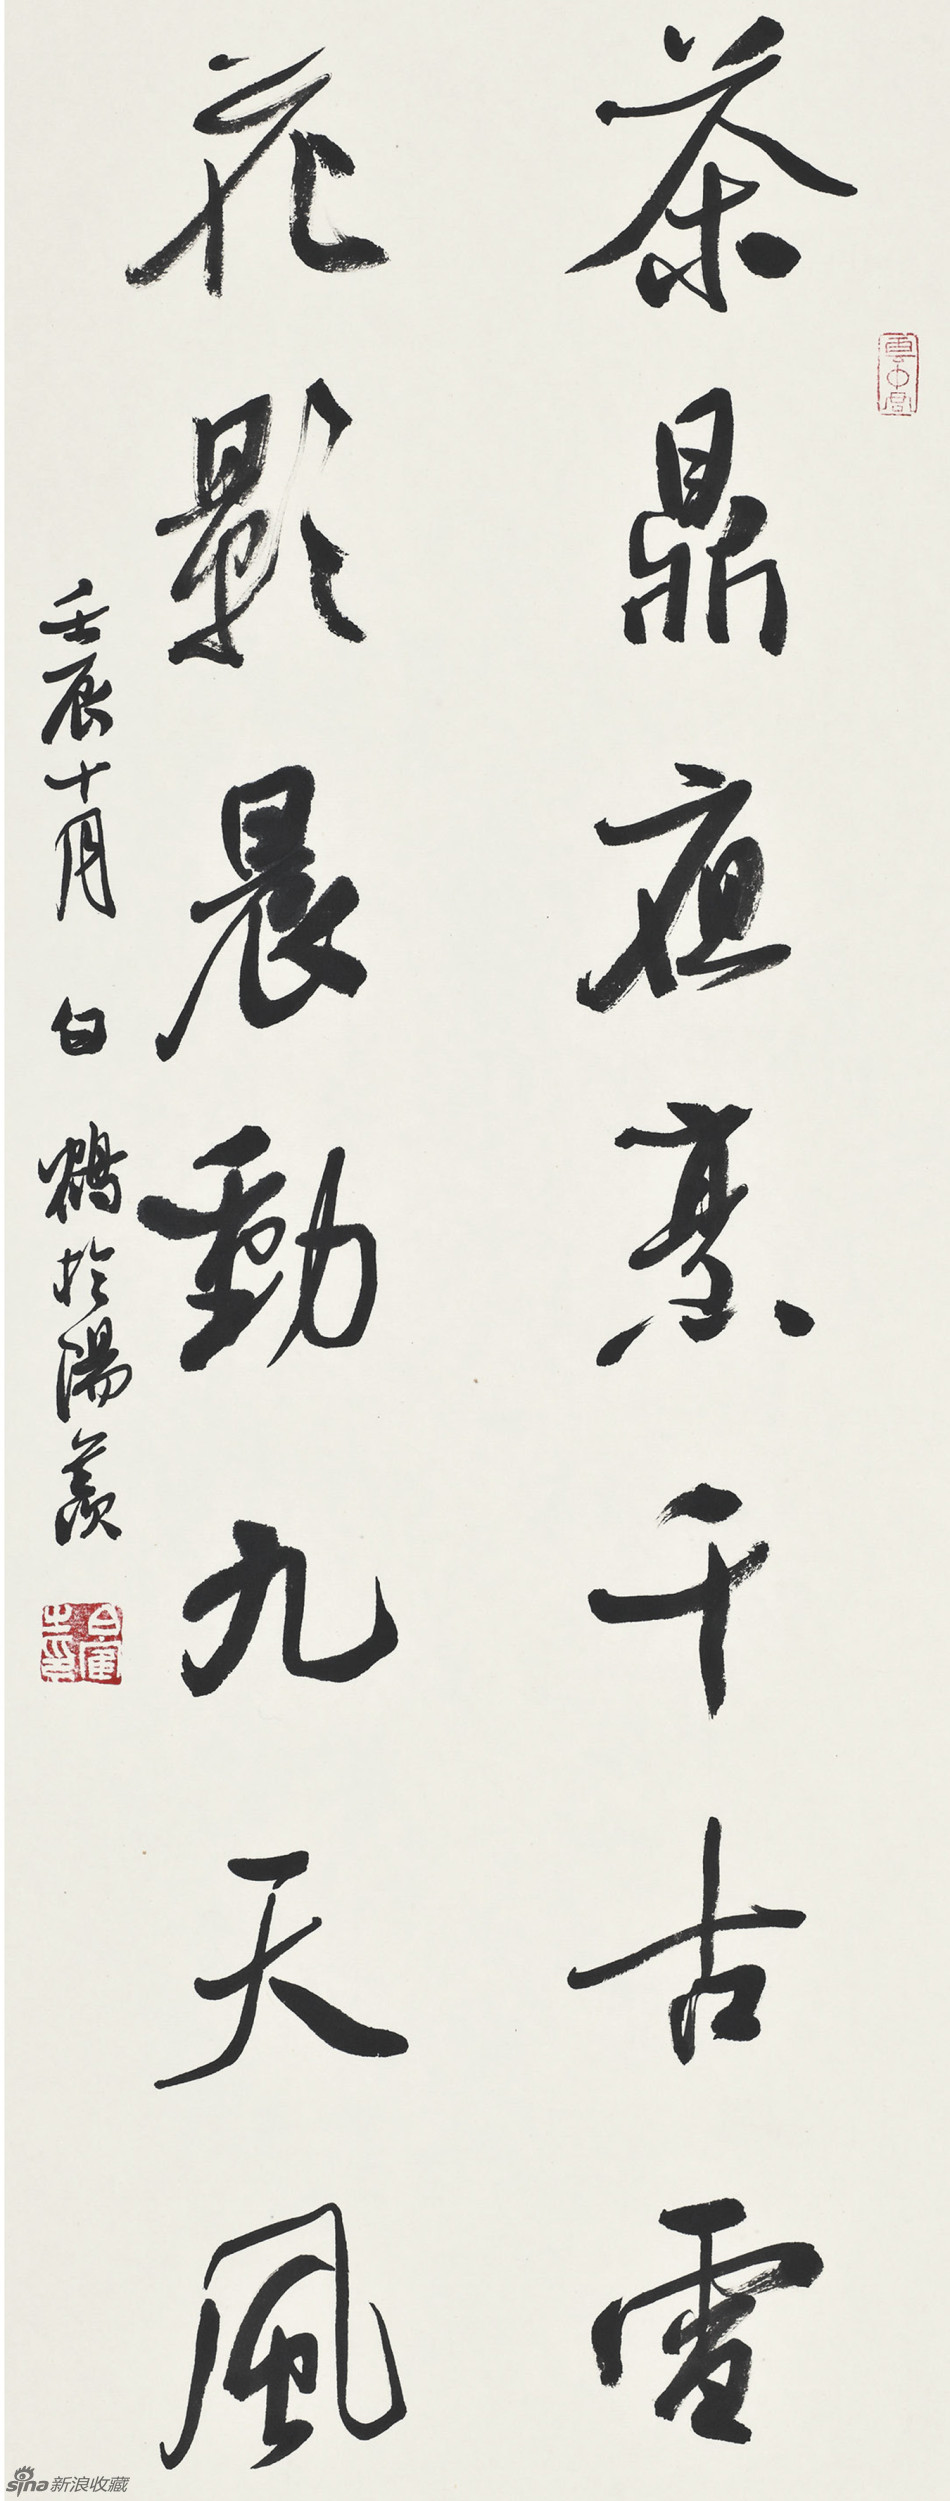 茶鼎夜烹千古雪
花影晨動九天風
壬辰十月 白鶴於陽羨
sina新浪收藏